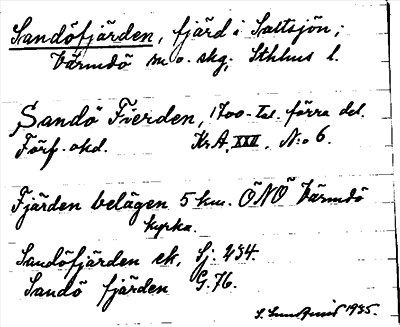 Sandöfjärden, fjärd i Saltsjön;
Värmdö m. o. skg; Sthlms l.
Sandö Fierden, 1700-tal. förra del.
Förf. okd. Kr. A. XXII, N:o 6.
Fjärden belägen 5 km. ÖNÖ Värmdö
kyrka.
Sandöfjärden ek. Sj. 234.
Sandö fjärden G. 76.
1935.